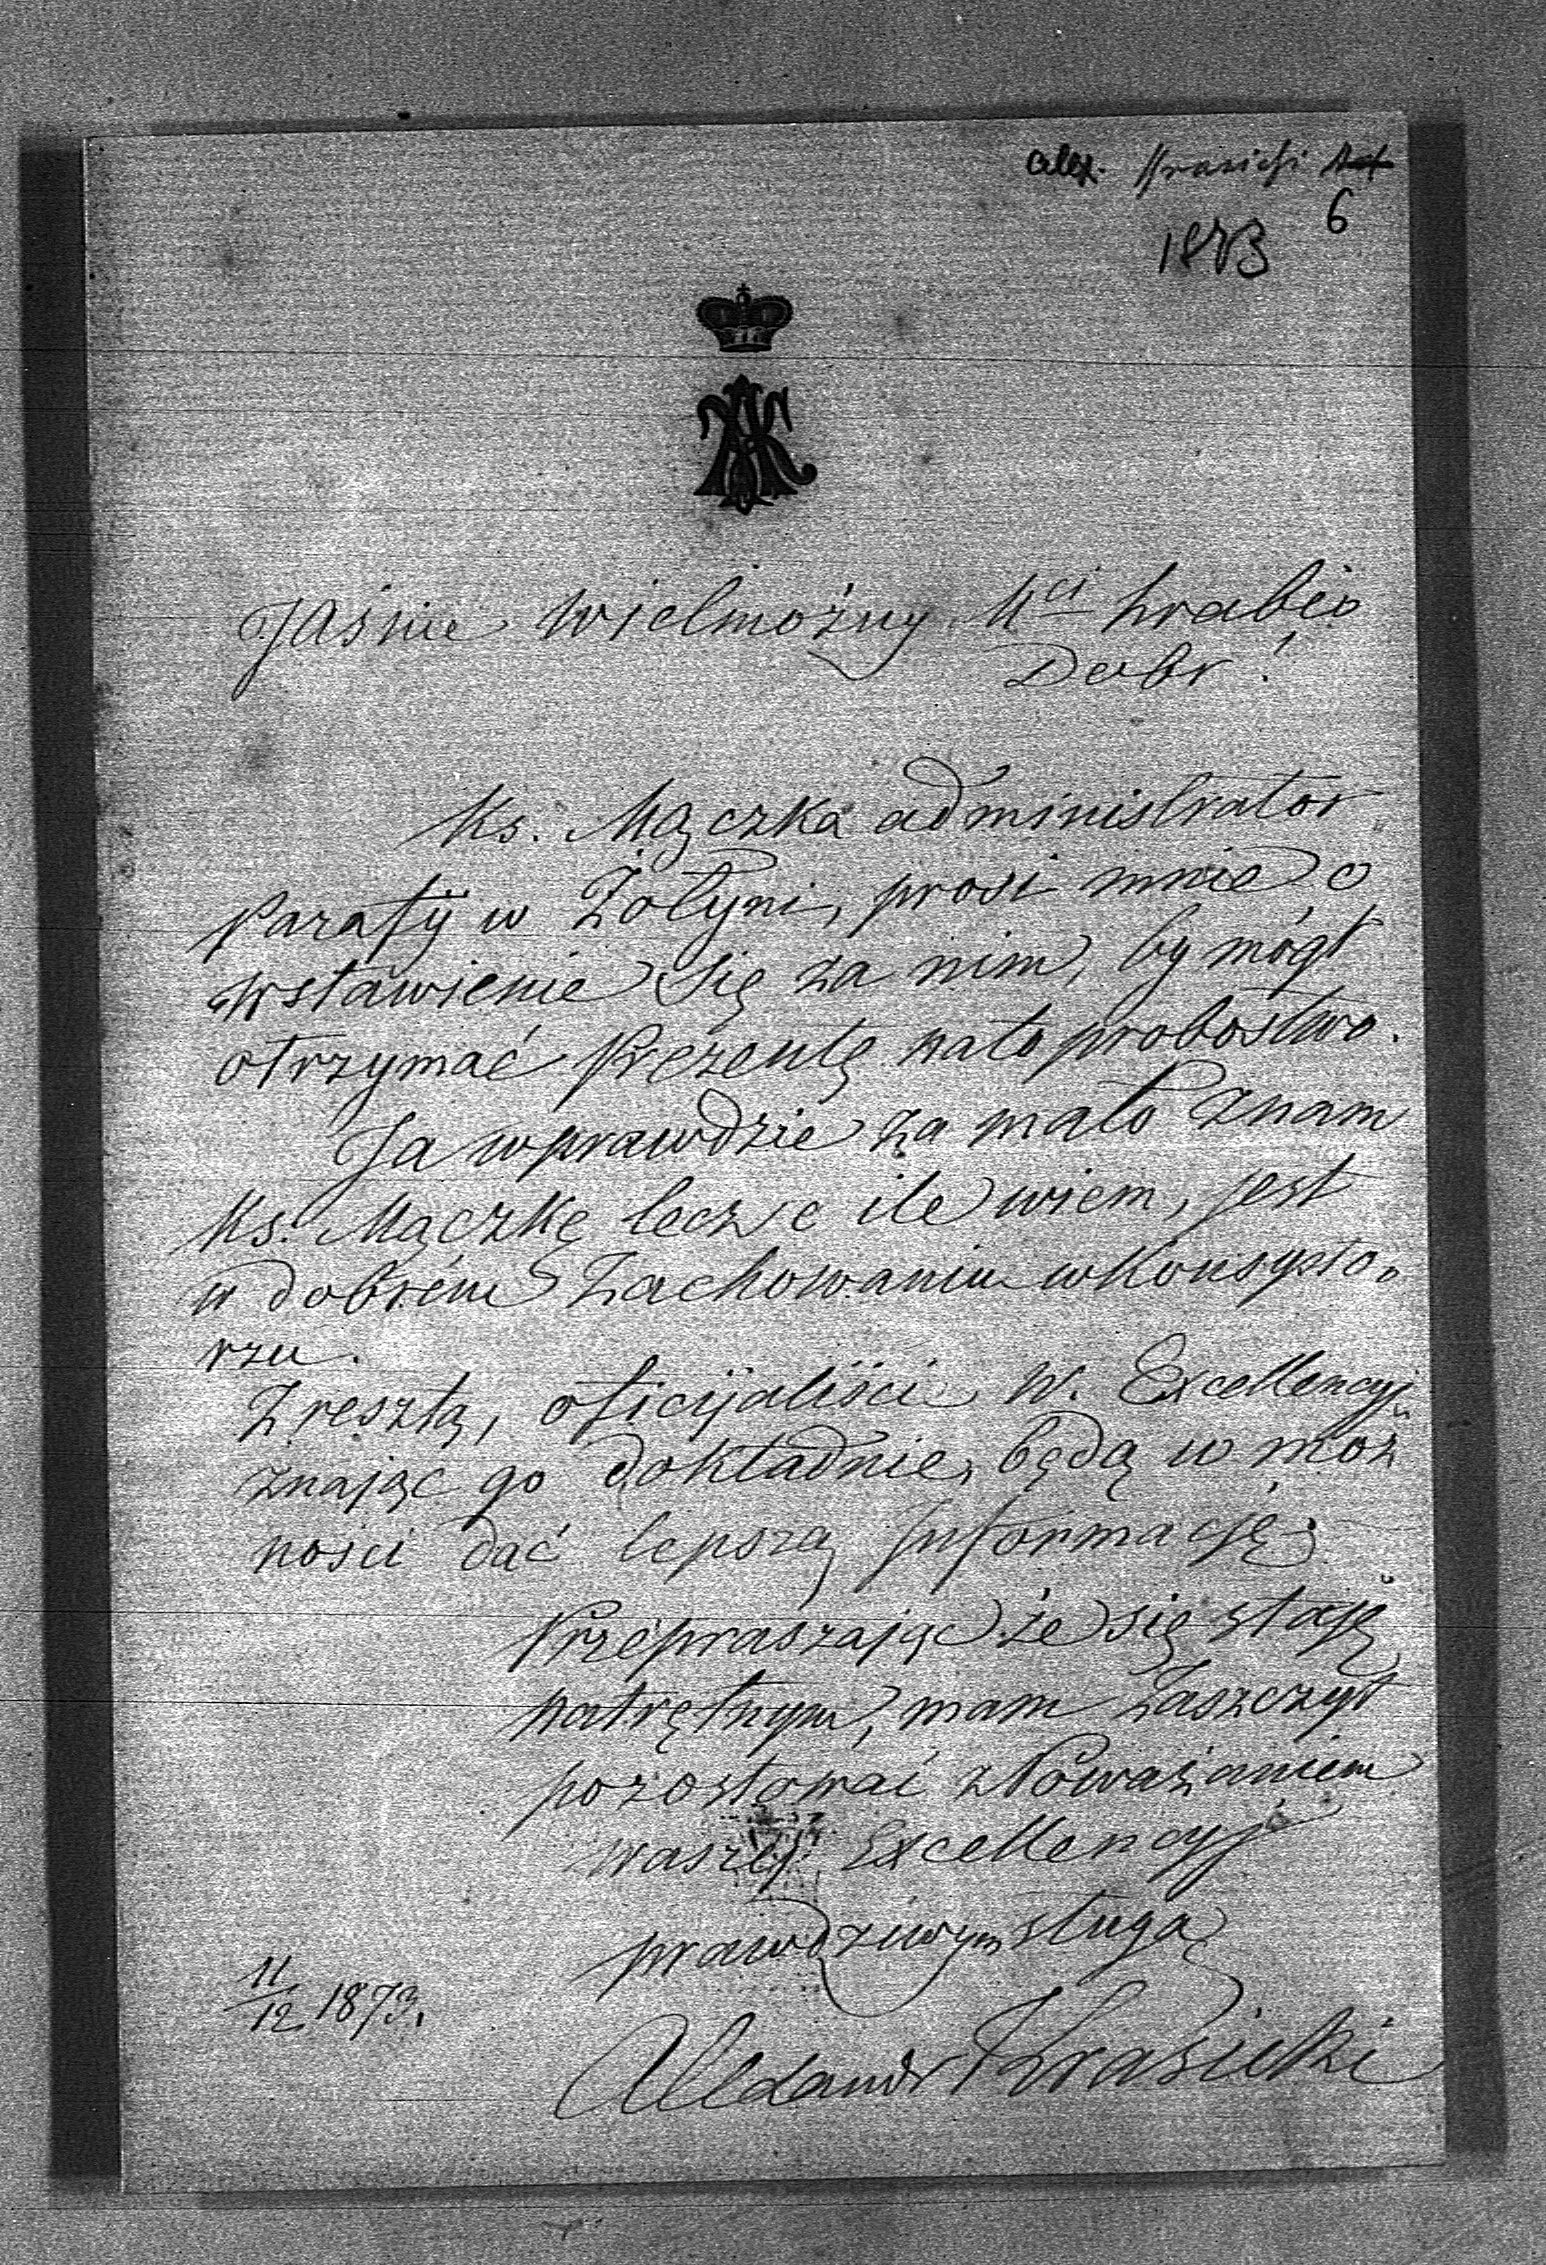 Alex. Krasicki
6
1873
AK
Jaśnie Wielmożny Mci hrabio
Dobr!
Ks. Mączka administrator
Parafij w Żołyni, prosi mnie o
wstawienie się za nim, by mógł
otrzymać Prezentę na to probostwo.
Ja wprawdzie za mało znam
Ks. Mączkę lecz o ile wiem, jest
w dobrém zachowaniu w Konsysto-
rzu.
Zresztą, oficijaliści W. Excellencyj
znając go dokładnie, będą w moż
ności dać lepszą Informację.
Przepraszając że się staję
natrętnym, mam zaszczyt
pozostować z Poważaniem
waszej Excellencyj
prawdziwym sługą
11/12 1873.
Alexander Krasicki